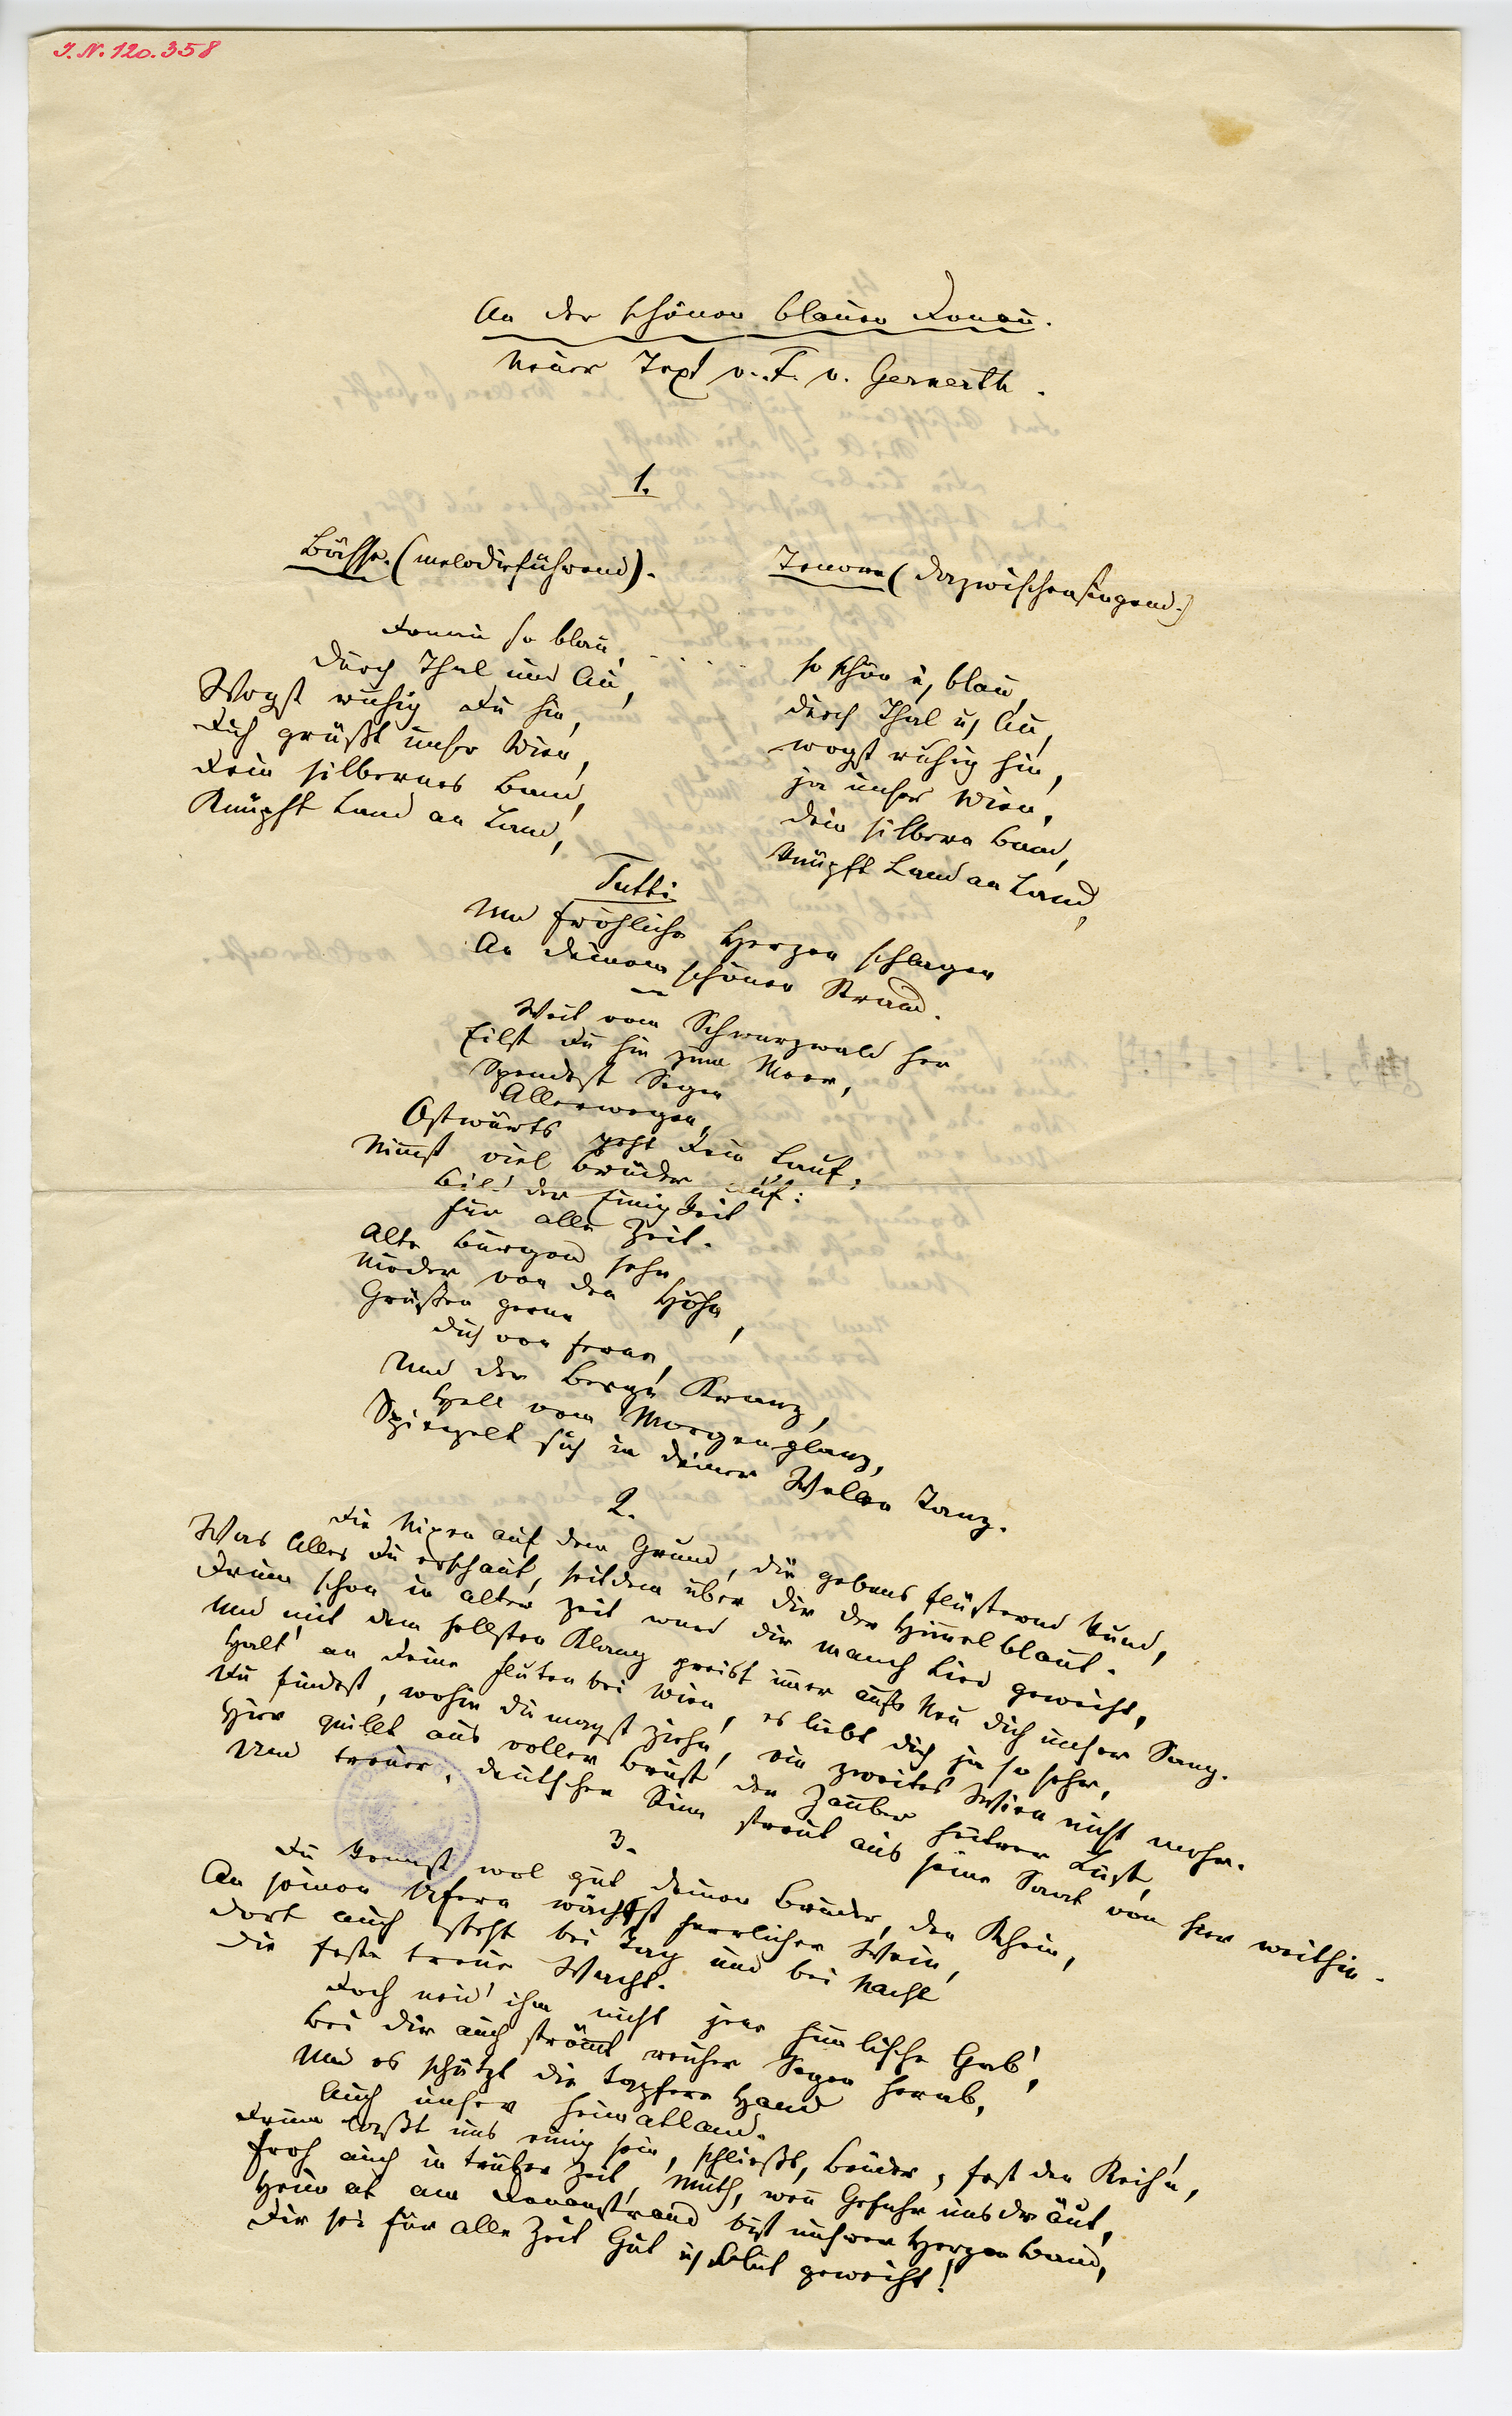 J. N. 120.358
An der schönen blauen Donau.
Neuer Text v. F. v. Gernerth.
1.
Bässe. (melodieführend).
Tenore (dazwischensingend.)
Donau so blau, . . . . .
so schön u. blau,
Durch Thal und Au,
durch Thal u. Au,
Wogst ruhig Du hin,
wogst ruhig hin,
Dich grüßt unser Wien,
ja unser Wien,
Dein silbernes Band,
dein silbern Band,
Knüpft Land an Land,
knüpft Land an Land,
Tutti
Und fröhliche Herzen schlagen
An deinem schönen Strand.
Weit vom Schwarzwald her
Eilst Du hin zum Meer,
Spendest Segen
Allerwegen,
Ostwärts geht Dein Lauf,
Nimmst viel Brüder auf:
Bild der Einigkeit
Für alle Zeit.
Alte Burgen sehn
Nieder von den Höhn,
Grüßen gerne
Dich von ferne,
Und der Berge Kranz,
Hell vom Morgenglanz,
Spiegelt sich in deiner Wellen Tanz.
2.
Die Nixen auf dem Grund, die gebens flüsternd kund,
Was Alles Du erschaut, seitdem über dir der Himmel blaut.
Drum schon in alter Zeit ward dir manch Lied geweiht,
Und mit dem hellsten Klang preist immer aufs Neu dich unser Sang.
Halt' an Deine Fluten bei Wien, es liebt dich ja so sehr,
Du findest, wohin du magst ziehn, ein zweites Wien nicht mehr.
Hier quillt aus voller Brust der Zauber heitrer Lust,
Und treuer, deutscher Sinn streut aus seine Saat von hier weithin.
3.
Du kennst wol gut deinen Bruder, den Rhein,
An seinen Ufern wächst herrlicher Wein,
Dort auch steht bei Tag und bei Nacht
Die feste treue Wacht.
Doch neid' ihm nicht jene himmlische Gab',
Bei dir auch strömt reicher Segen herab,
Und es schützt die tapfere Hand
Auch unser Heimatland.
Drum laßt uns einig sein, schließt, Brüder, fest den Reih'n,
Froh auch in trüber Zeit, Muth, wenn Gefahr uns dräut,
Heimat am Donaustrand bist unsrer Herzen Band,
Dir sei für alle Zeit Gut u. Blut geweiht!